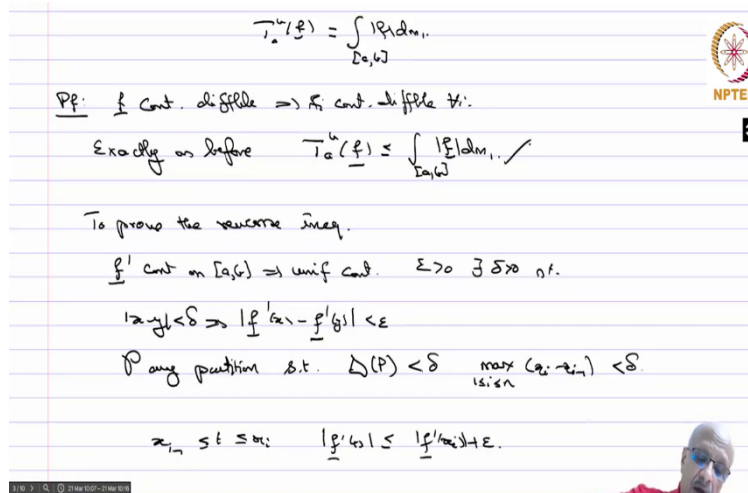 T_a^b(f) = ∫_{[a,b]} |f| dm_1.
Pf: f cont. diffble ⇒ f_i cont. diffble ∀i.
Exactly as before T_a^b(f) ≤ ∫_{[a,b]} |f| dm_1. ✓
To prove the reverse ineq.
f' cont on [a,b] ⇒ unif cont. ε>0 ∃ δ>0 s.t.
|x-y|<δ ⇒ |f'(x) - f'(y)| < ε
P any partition s.t. Δ(P) < δ max_{1≤i≤n} (x_i - x_{i-1}) < δ.
x_{i-1} ≤ t ≤ x_i |f'(t)| ≤ |f'(x_i)| + ε.
NPTE
3/10 21 Mar 10:07 – 21 Mar 10:18